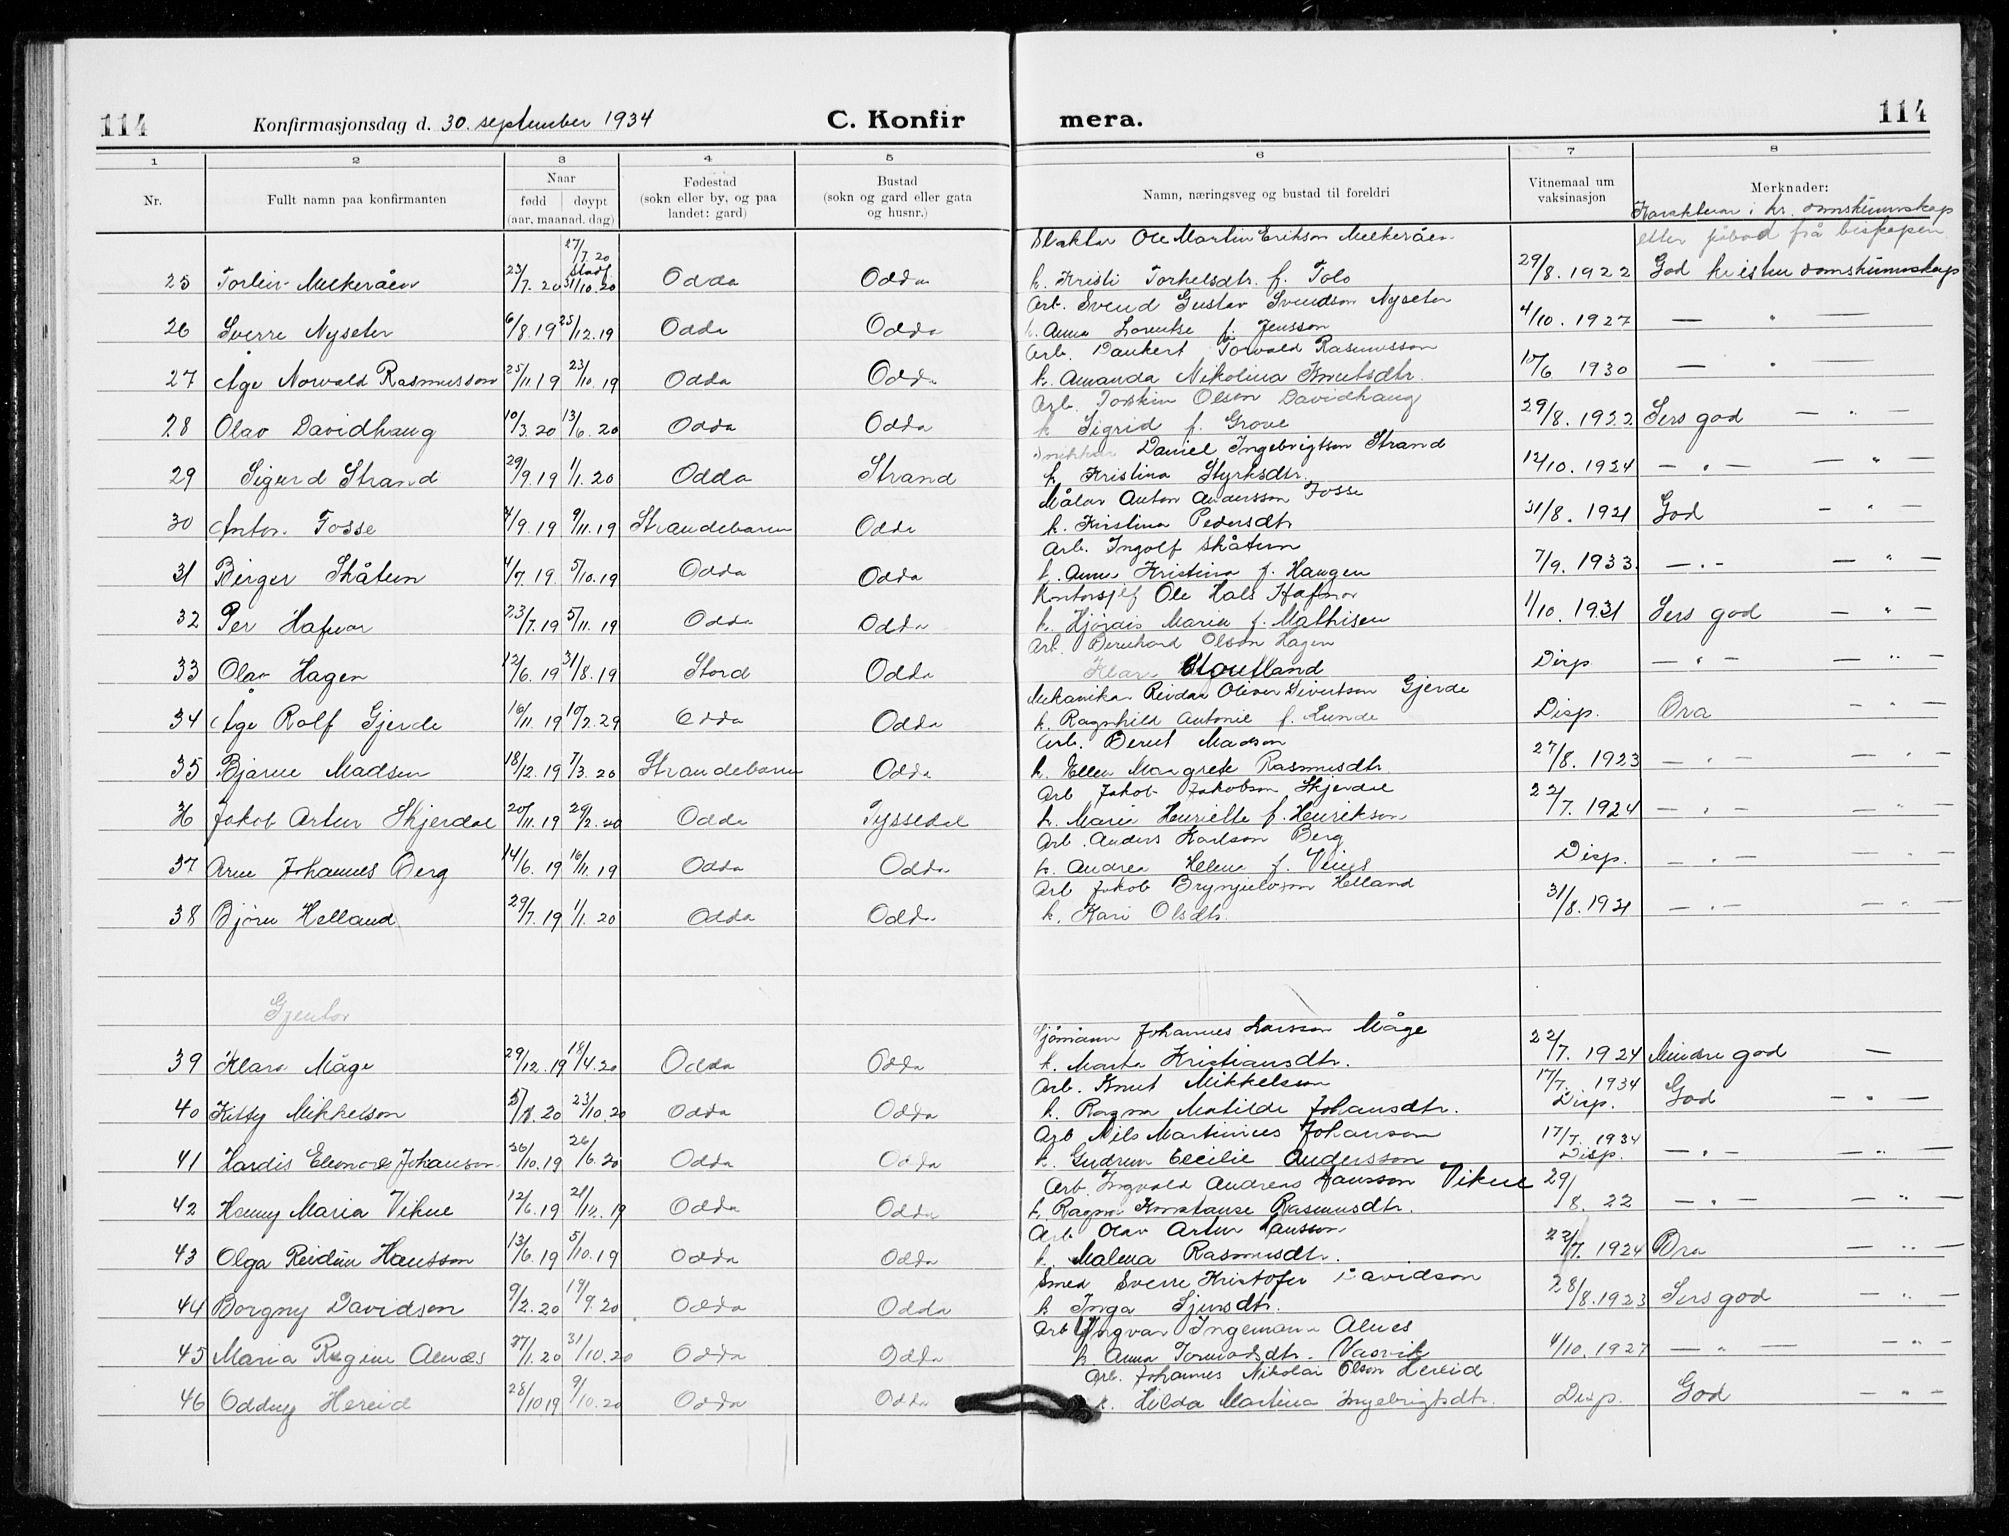 114 Konfirmasjonsdag d. 30. september 1934 C. Konfir mera. 114
1 2 3 4 5 6 7 8
Nr. Fullt namn paa konfirmanten Naar fødd døypt (aar, maanad, dag) Fødestad (sokn eller by, og paa landet: gard) Bustad (sokn og gard eller gata og husnr.) Namn, næringsveg og bustad til foreldri Vitnemaal um vaksinasjon Merknader:
Karakterar i kr. domskunnskap
etter påbod frå biskopen
17/7.20 stadf. Slaktar Ole Martin Erikson Melkeråen
25 Torleiv Melkeråen 23/7. 20 31/10.20 Odda Odda k. Kristi Torkelsdtr. f. Tolo 29/8. 1922 God kristendomskunnskap
Arb. Svend Gustav Svendson Nyseter
26 Sverre Nyseter 6/8.19 25/12.19 Odda Odda k. Anna Lorentse f. Jensson 4/10. 1927 — " —
Arb. Dankert Torvald Rasmusson
27 Åge Norvald Rasmusson 25/11.19 23/10.19 Odda Odda k. Amanda Nikolina Knutsdtr. 10/6 1930 — " —
Arb. Torstein Olson Davidhaug
28 Olav Davidhaug 10/3.20 13/6.20 Odda Odda k. Sigrid f. Grove 29/8. 1922 Sers god — " —
Snikkar Daniel Ingebrigtson Strand
29 Sigurd Strand 29/9.19 1/1.20 Odda Strand k. Kristina Styrksdtr. 12/10. 1924 — " — — " —
Målar Anton Andersson Fosse
30 Anton Fosse 4/9.19 9/11.19 Strandebarm Odda k. Kristina Pedersdtr 31/8. 1921 God — " —
Arb. Ingolf Skåtun
31 Birger Skåtun 4/7.19 5/10.19 Odda Odda k. Anna Kristina f. Haugen 7/9. 1933 — " — — " —
Kontorsjef Ole Hals Hafnor
32 Per Hafnor 23/7.19 5/11.19 Odda Odda k. Hjørdis Maria f. Mathisen 1/10. 1931 Sers god — " —
Arb. Bernhard Olson Hagen
33 Olav Hagen 12/6.19 31/8.19 Stord Odda Klara Disp. — " — — " —
Mekanikar Reidar Oliver Sivertson Gjerde
34 Åge Rolf Gjerde 16/11.19 10/2.29 Odda Odda k. Ragnhild Antonie f. Lunde Disp. Bra — " —
Arb. Berent Madson
35 Bjarne Madsen 18/12.19 7/3.20 Strandebarm Odda k. Ellen Margrete Rasmusdtr. 27/8. 1923 — " — — " —
Arb Jakob Jakobson Skjerdal
36 Jakob Artur Skjerdal 20/11.19 29/2.20 Odda Tyssedal k. Marie Henriette f. Henrikson 22/7. 1924 — " — — " —
Arb. Anders Karlson Berg
37 Arne Johannes Berg 14/6.19 16/11.19 Odda Odda k. Andrea Helene f. Disp. — " — — " —
Arb Jakob Brynjulvson Helland
38 Bjørn Helland 29/7.19 1/1.20 Odda Odda k. Kari Olsdtr. 31/8. 1921 — " — — " —
Gjentor
Sjømann Johannes Larsson Måge
39 Klara Måge 29/12.19 18/4.20 Odda Odda k. Marta Kristiansdtr. 22/7. 1924 Mindre god —
Arb. Knut Mikkelson 17/7. 1934
40 Kitty Mikkelson 5/8.20 23/10.20 Odda Odda k. Ragna Matilde Johansdtr. Disp. God — " —
Arb Nils Martinius Johanson 17/7. 1934
41 Hardis Eleonore Johanson 26/10.19 26/6.20 Odda Odda k. Gudrun Cecilie Andersson Disp. — " — — " —
Arb. Ingvald Andreas Hansson Vikne
42 Henny Maria Vikne 12/6.19 21/12.19 Odda Odda k. Ragna Konstanse Rasmusdtr. 29/8. 22 — " — — " —
Arb Olav Artur Hansson
43 Olga Reidun Hansson 13/6.19 5/10.19 Odda Odda k. Malena Rasmusdtr. 22/7. 1924 Bra — " —
Smed Sverre Kristofer Davidson
44 Borgny Davidson 9/2.20 19/9.20 Odda Odda k Inga Sjursdtr. 28/8.1923 Sers god — " —
Arb Yngvar Ingemann Alnes
45 Maria Regine Alnæs 27/1.20 31/10.20 Odda Odda k Anna Tormodsdtr. Vasvik 4/10. 1927 — " — — " —
Arb. Johannes Nikolai Olson Hereid
46 Oddny Hereid 28/10 19 9/10.20 Odda Odda k. Hilda Martina Ingebrigtsdtr. Disp. God — " —